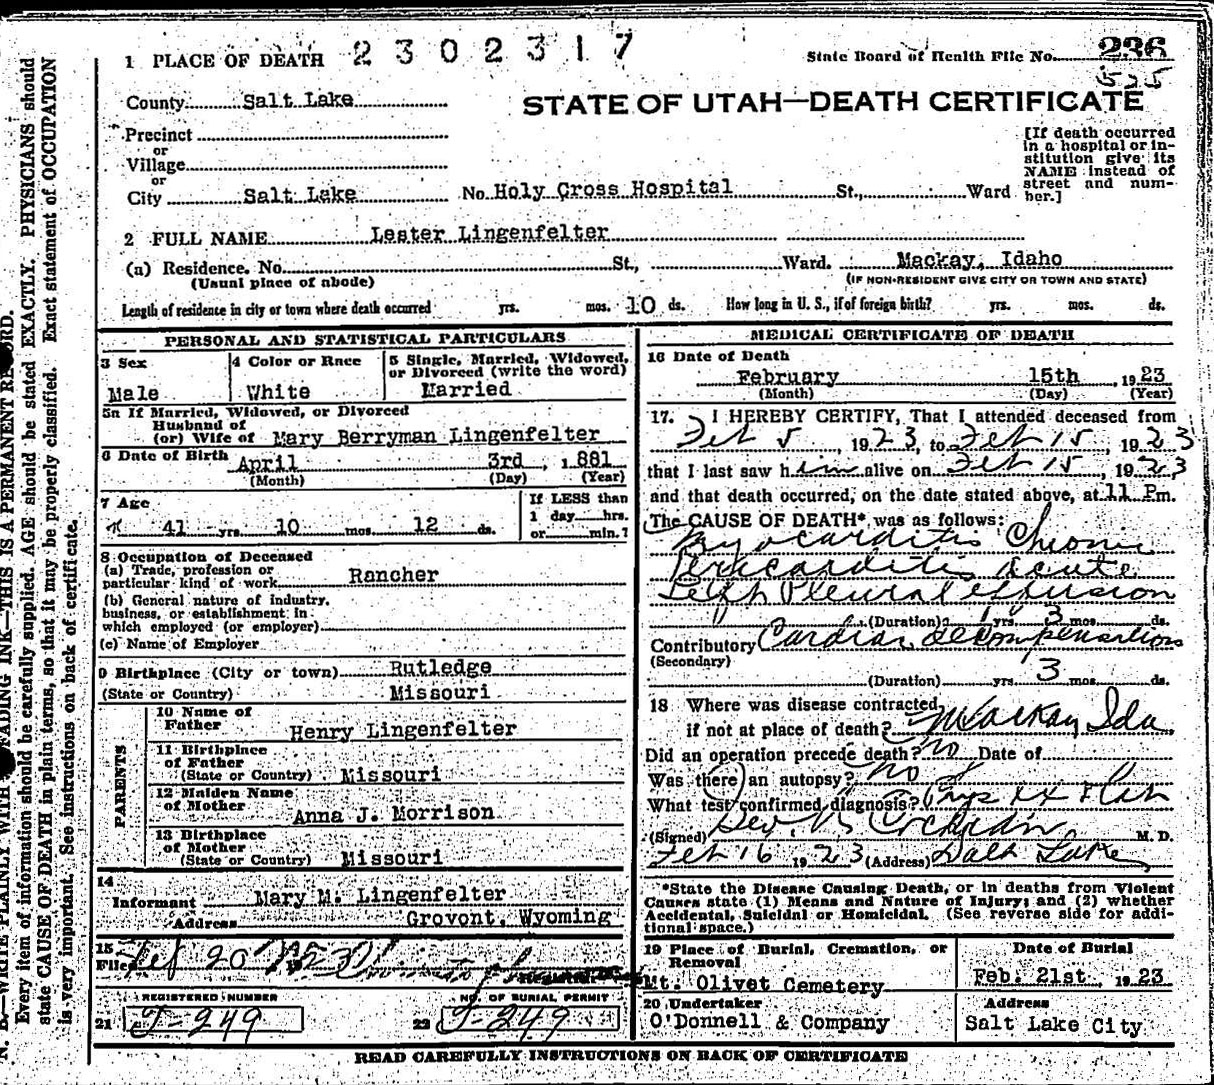 1 PLACE OF DEATH 2302317
State Board of Health File No. 236
525
County Salt Lake
STATE OF UTAH—DEATH CERTIFICATE
Precinct
or
Village
or
City Salt Lake No. Holy Cross Hospital St., Ward
[If death occurred
in a hospital or in-
stitution give its
NAME instead of
street and num-
ber.]
2 FULL NAME Lester Lingenfelter
(a) Residence. No. St., Ward. Mackay, Idaho
(Usual place of abode) (IF NON-RESIDENT GIVE CITY OR TOWN AND STATE)
Length of residence in city or town where death occurred yrs. mos. 10 ds. How long in U. S., if of foreign birth? yrs. mos. ds.
PERSONAL AND STATISTICAL PARTICULARS
3 Sex
Male
4 Color or Race
White
5 Single, Married, Widowed,
or Divorced (write the word)
Married
5a If Married, Widowed, or Divorced
Husband of
(or) Wife of Mary Berryman Lingenfelter
6 Date of Birth April 3rd, 1881
(Month) (Day) (Year)
7 Age
41 yrs. 10 mos. 12 ds.
If LESS than
1 day hrs.
or min.?
8 Occupation of Deceased
(a) Trade, profession or
particular kind of work Rancher
(b) General nature of industry,
business, or establishment in
which employed (or employer)
(c) Name of Employer
9 Birthplace (City or town) Rutledge
(State or Country) Missouri
PARENTS
10 Name of
Father Henry Lingenfelter
11 Birthplace
of Father
(State or Country) Missouri
12 Maiden Name
of Mother Anna J. Morrison
13 Birthplace
of Mother
(State or Country) Missouri
14
Informant Mary M. Lingenfelter
Address Grovont, Wyoming
15
Filed Feb 20 1923
Registrar
REGISTERED NUMBER
21 J-249
NO. OF BURIAL PERMIT
22 J-249
MEDICAL CERTIFICATE OF DEATH
16 Date of Death
February 15th, 1923
(Month) (Day) (Year)
17. I HEREBY CERTIFY, That I attended deceased from
Feb 5, 1923, to Feb 15, 1923
that I last saw him alive on Feb 15, 1923
and that death occurred, on the date stated above, at 11 P.m.
The CAUSE OF DEATH*, was as follows:
Myocarditis Chronic
Pericarditis acute
Pleural effusion
(Duration) 1 yrs. 3 mos. ds.
Contributory Cardiac decompensation
(Secondary)
(Duration) yrs. 3 mos. ds.
18 Where was disease contracted,
if not at place of death? Mackay Ida
Did an operation precede death? no Date of
Was there an autopsy? no
What test confirmed diagnosis? Phys
(Signed) M. D.
Feb 16 1923 (Address) Salt Lake
*State the Disease Causing Death, or in deaths from Violent
Causes state (1) Means and Nature of Injury; and (2) whether
Accidental, Suicidal or Homicidal. (See reverse side for addi-
tional space.)
19 Place of Burial, Cremation, or
Removal
Mt. Olivet Cemetery
Date of Burial
Feb. 21st, 1923
20 Undertaker
O'Donnell & Company
Address
Salt Lake City
READ CAREFULLY INSTRUCTIONS ON BACK OF CERTIFICATE
N. B.—WRITE PLAINLY WITH UNFADING INK—THIS IS A PERMANENT RECORD.
Every item of information should be carefully supplied. AGE should be stated EXACTLY. PHYSICIANS should
state CAUSE OF DEATH in plain terms, so that it may be properly classified. Exact statement of OCCUPATION
is very important. See instructions on back of certificate.